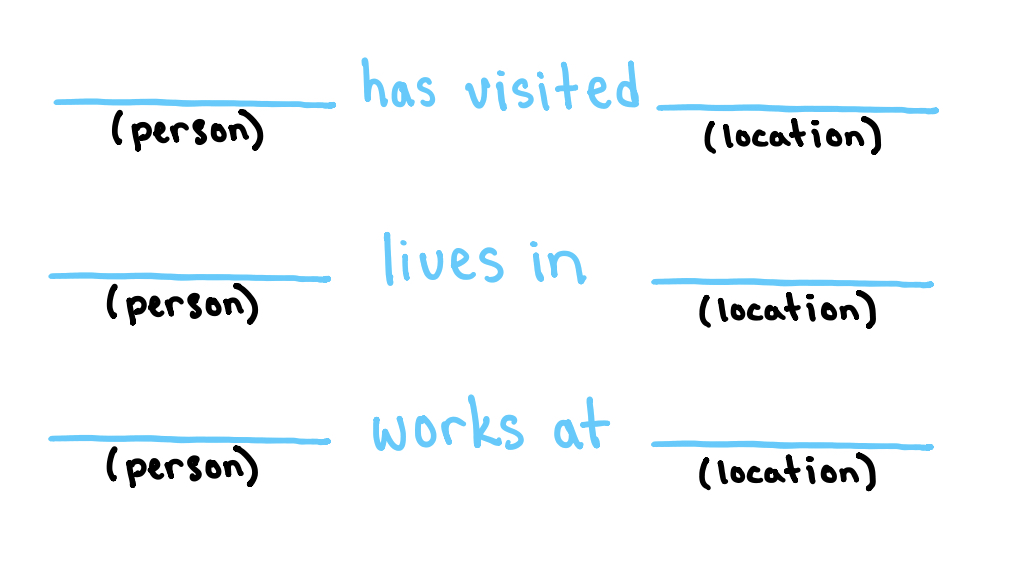 has visited
(person) (location)
lives in
(person) (location)
works at
(person) (location)